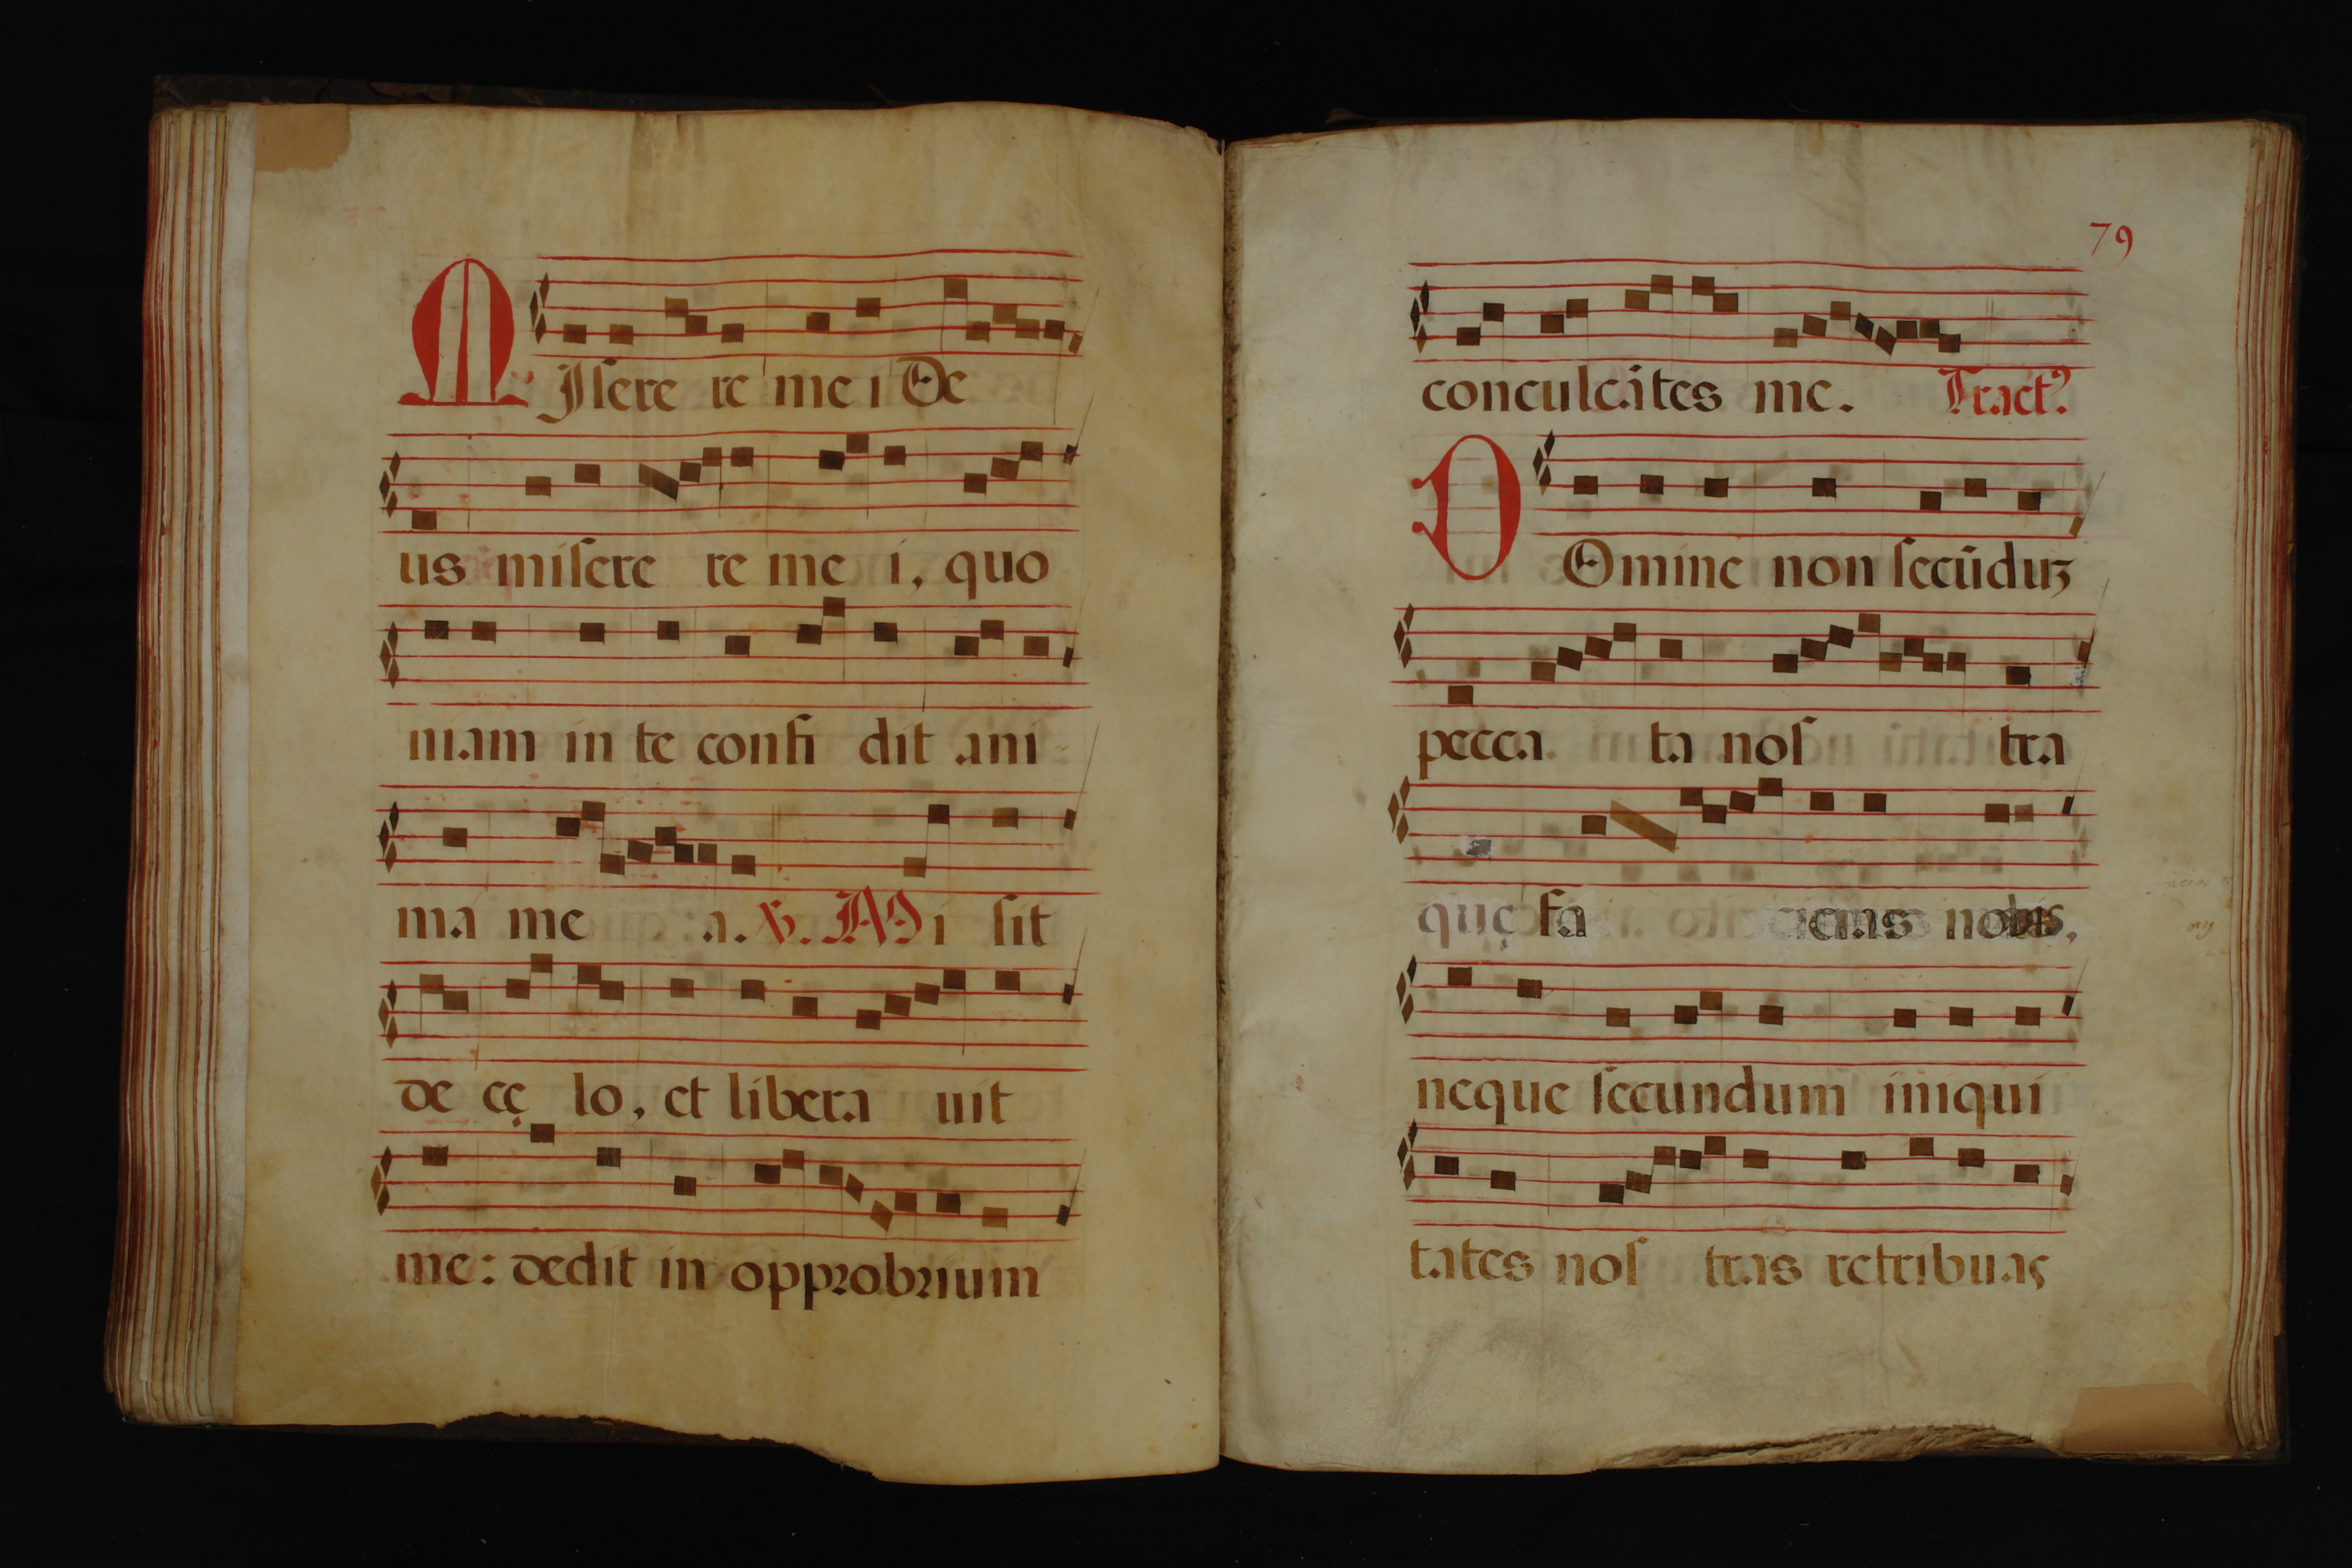 MJſere re me i De
us miſere re me i, quo
niam in te confi dit ani
ma me a. ℣. Mi ſit
de cę lo, et libera uit
me: dedit in opprobrium
79
conculcātes me. Tract⁹
DOmine non ſecūduȝ
pecca ta noſ tra
quę fa ciens nobis,
neque ſecundum iniqui
tates noſ tras retribuas